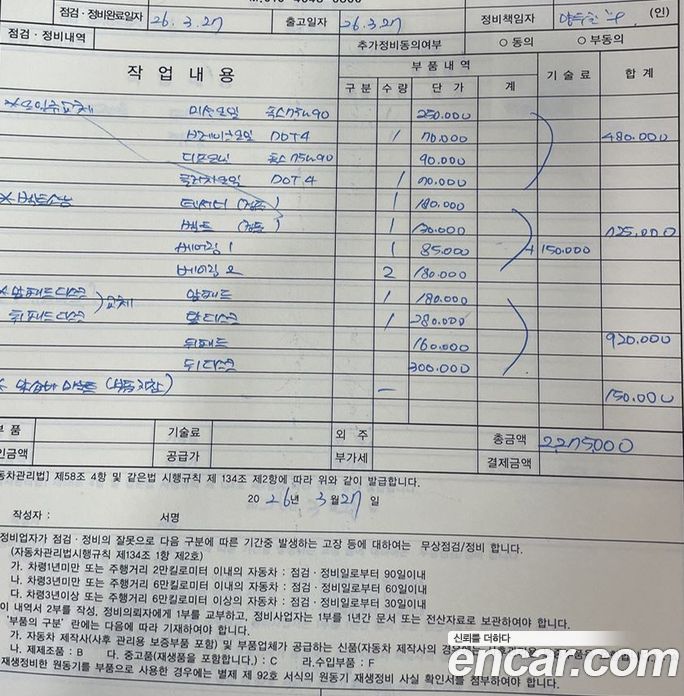 점검·정비완료일자 26. 3. 27 출고일자 26. 3. 27 정비책임자 (인)
점검·정비내역 추가정비동의여부 ○ 동의 ○ 부동의
작 업 내 용 부 품 내 역 기 술 료 합 계
구 분 수 량 단 가 계
미션오일 75W90 250.000
브레이크오일 DOT4 1 70.000 480.000
75W90 90.000
DOT4 1 70.000
1 180.000
벨트 1 130.000 725.000
베어링 1 1 85.000 + 150.000
베어링 2 2 180.000
* 앞패드디스크 교체 앞패드 1 180.000
뒤패드디스크 앞디스크 1 280.000
뒤패드 160.000 920.000
뒤디스크 300.000
- 150.000
부 품 기술료 외 주 총금액 2275000
인금액 공급가 부가세 결제금액
동차관리법] 제58조 4항 및 같은법 시행규칙 제 134조 제2항에 따라 위와 같이 발급합니다.
20 26년 3월 27일
작성자 : 서명
정비업자가 점검·정비의 잘못으로 다음 구분에 따른 기간중 발생하는 고장 등에 대하여는 무상점검/정비 합니다.
(자동차관리법시행규칙 제134조 1항 제2호)
가. 차령1년미만 또는 주행거리 2만킬로미터 이내의 자동차 : 점검·정비일로부터 90일이내
나. 차령3년미만 또는 주행거리 6만킬로미터 이내의 자동차 : 점검·정비일로부터 60일이내
다. 차령3년이상 또는 주행거리 6만킬로미터 이상의 자동차 : 점검·정비일로부터 30일이내
이 내역서 2부를 작성, 정비의뢰자에게 1부를 교부하고, 정비사업자는 1부를 1년간 문서 또는 전산자료로 보관하여야 합니다.
'부품의 구분' 란에는 다음에 따라 기재하여야 합니다.
가. 자동차 제작사(사후 관리용 보증부품 포함) 및 부품업체가 공급하는 신품(자동차 제작사의 경우
나. 재제조품 : B 다. 중고품(재생품을 포함합니다.) : C 라.수입부품 : F
재생정비한 원동기를 부품으로 사용한 경우에는 별제 제 92호 서식의 원동기 재생정비 사실 확인서를 첨부하여야 합니다.
신뢰를 더하다
encar.com